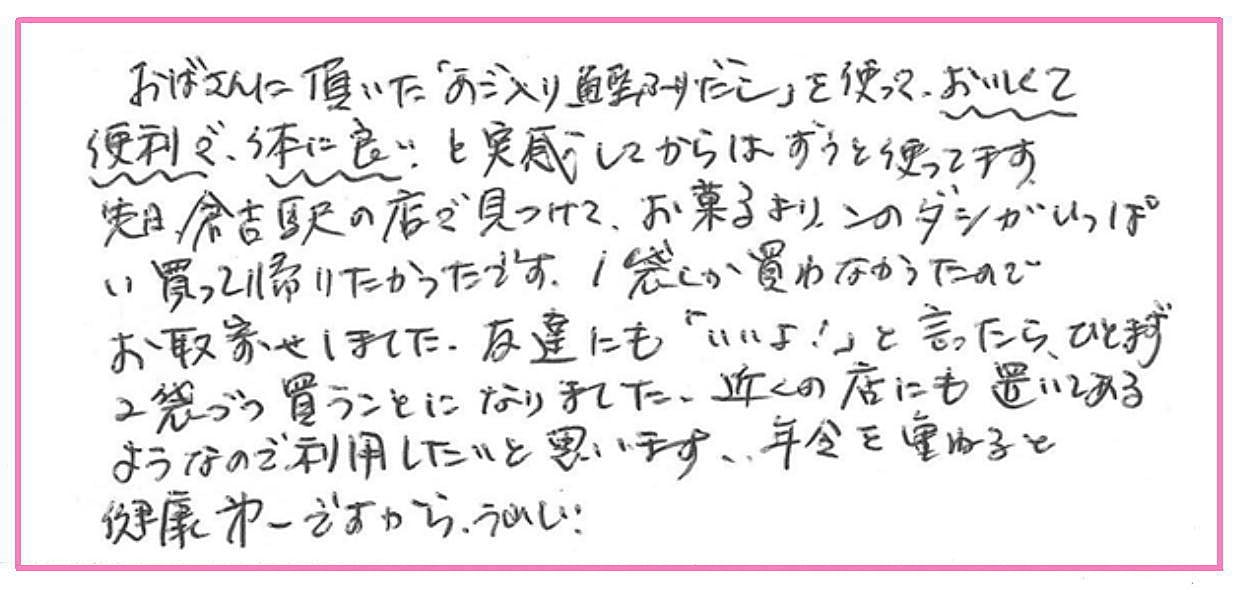 おばさんに頂いた「あご入り鰹ふりだし」を使って、おいしくて
便利で、体に良い!と実感してからはずうと使ってます
先日、倉吉駅の店で見つけて、お菓子より、このダシがいっぱ
い買って帰りたかったです。1袋しか買わなかったので
お取寄せしました。友達にも「いいよ!」と言ったら、ひとまず
2袋づつ買うことになりました。近くの店にも置いてある
ようなので利用したいと思います、年令を重ねると
健康第一ですから、うれしい!